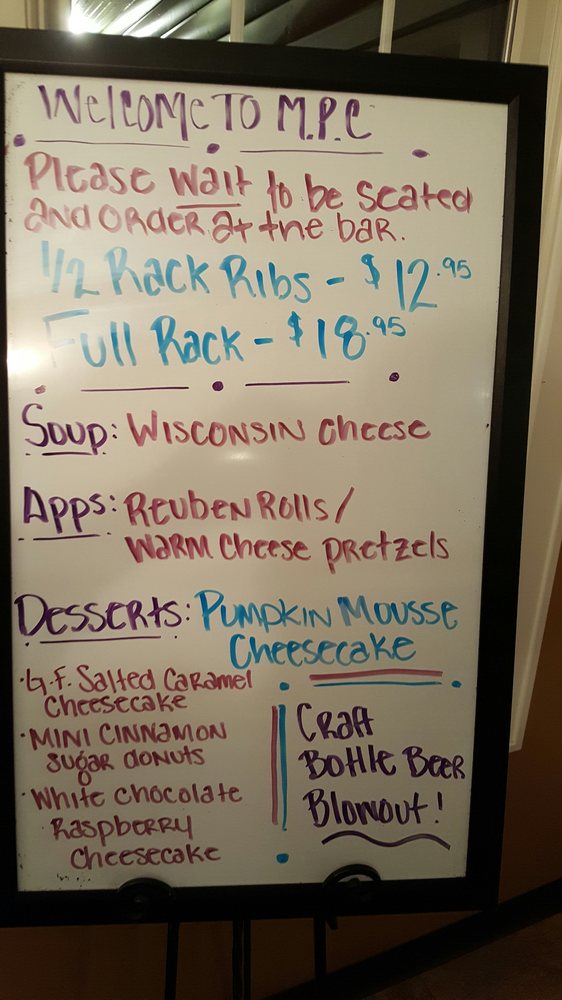 Welcome to M.P.C
Please wait to be seated
and order at the bar.
1/2 Rack Ribs - $12.95
Full Rack - $18.95
Soup: Wisconsin Cheese
Apps: Reuben Rolls/
Warm Cheese Pretzels
Desserts: Pumpkin Mousse
Cheesecake
· G.F. Salted Caramel
Cheesecake
· Mini Cinnamon
Sugar Donuts
· White Chocolate
Raspberry
Cheesecake
Craft
Bottle Beer
Blowout!